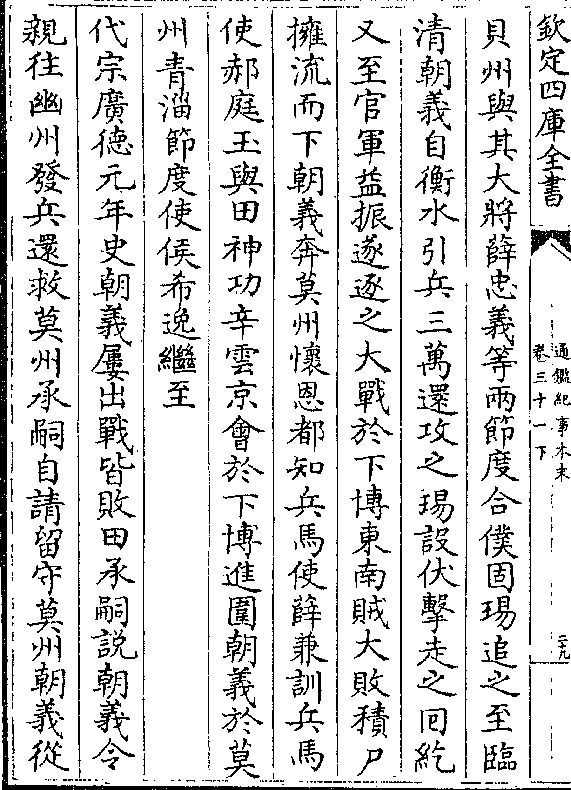 欽定四庫全書
通鑑紀事本末
卷三十一下
二九
貝州與其大將薛忠義等兩節度合僕固瑒追之至臨
清朝義自衡水引兵三萬還攻之瑒設伏擊走之回紇
又至官軍益振遂逐之大戰於下博東南賊大敗積尸
擁流而下朝義奔莫州懷恩都知兵馬使薛兼訓兵馬
使郝庭玉與田神功辛雲京會於下博進圍朝義於莫
州青淄節度使侯希逸繼至
代宗廣德元年史朝義屢出戰皆敗田承嗣説朝義令
親往幽州發兵還救莫州承嗣自請留守莫州朝義從